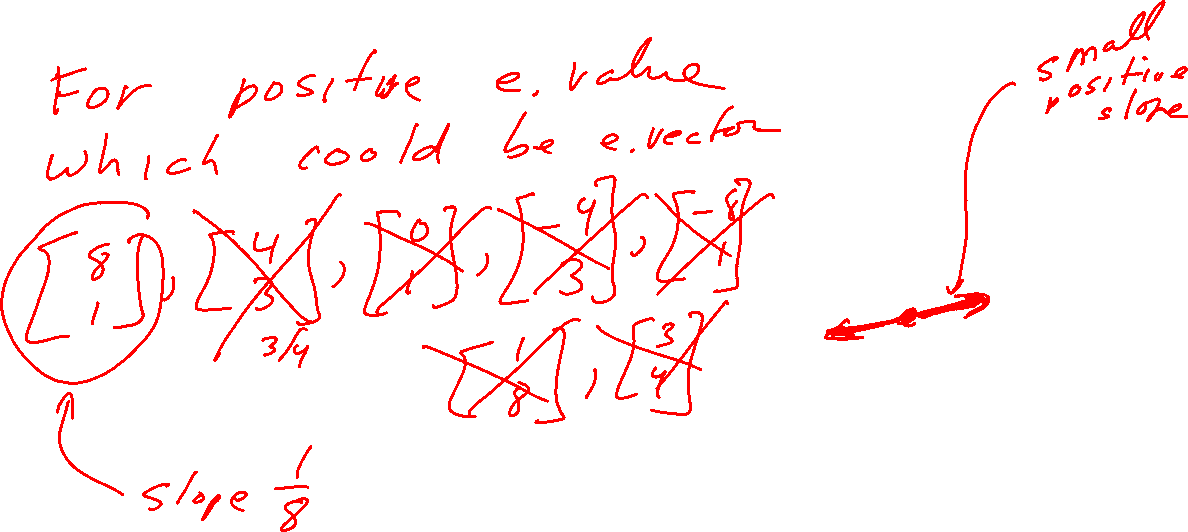 For positive e.value
which could be e.vector
[8 1], [4 3], [0 1], [-4 3], [-8 1]
3/4
[1 8], [3 4]
slope 1/8
small
positive
slope